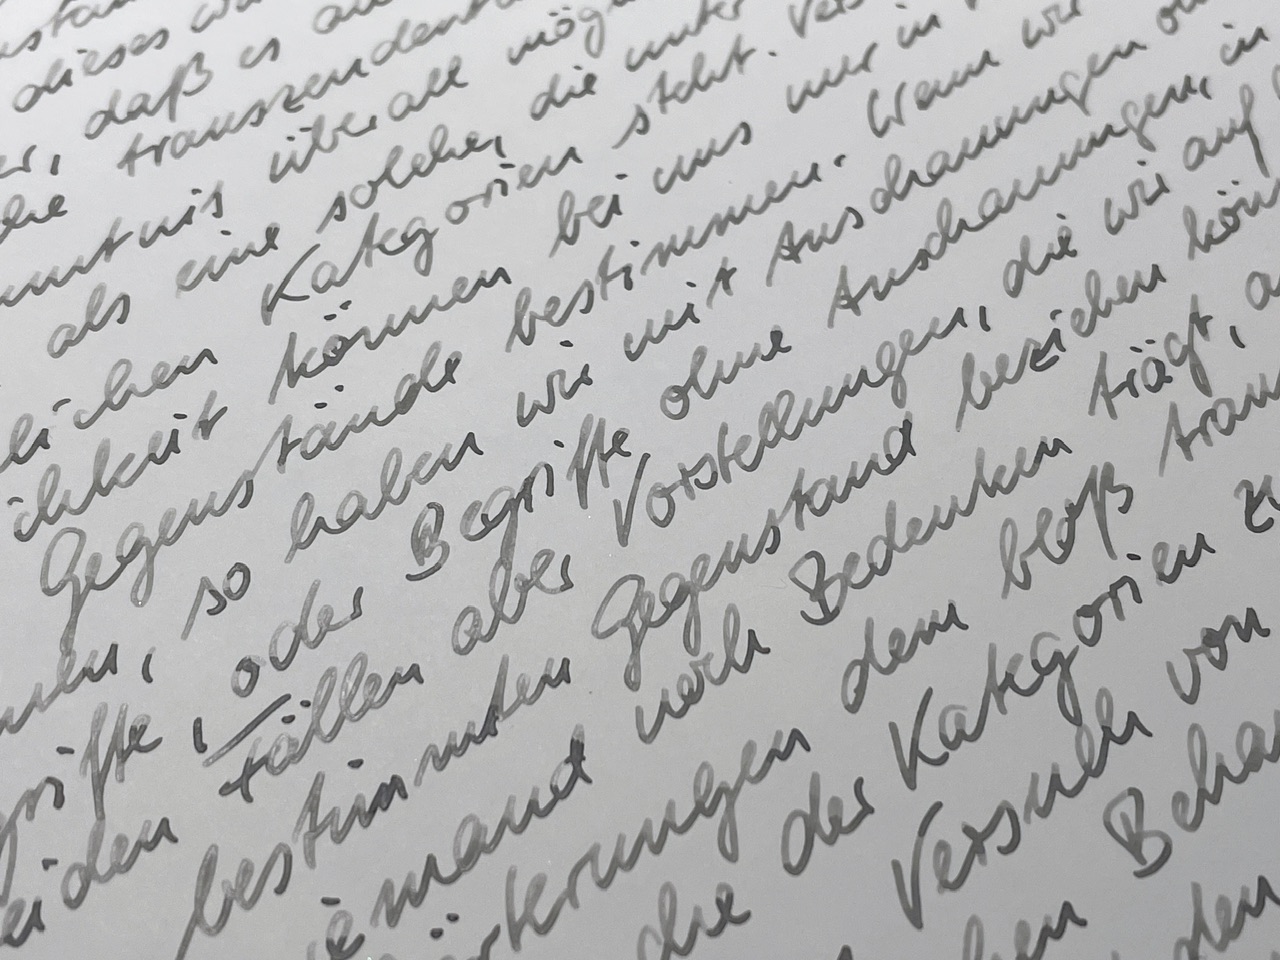 dieses
er, daß es
transzendent
nntnis überall mög
als eine solche, die unter
lichen Kategorien steht. Vers
ichkeit können bei uns nur in
Gegenstände bestimmen. Wenn wir
nnen, so haben wir mit Anschauungen
griffe, oder Begriffe ohne Anschauungen, in
eiden Fällen aber Vorstellungen, die wir auf
bestimmten Gegenstand beziehen könn
iemand noch Bedenken trägt,
örterungen dem bloß tran
die der Kategorien zu
Versuch von
hen Beha
den